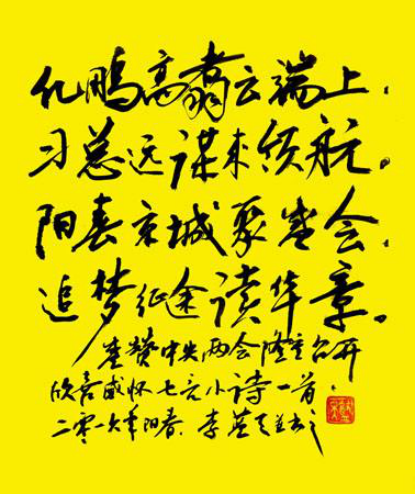 化鹏高翥云端上，
习总远谋来领航。
阳春京城聚盛会，
追梦征途读华章。
盛赞中央两会隆重召开
欣喜感怀七言小诗一首。
二零一六年阳春，李英